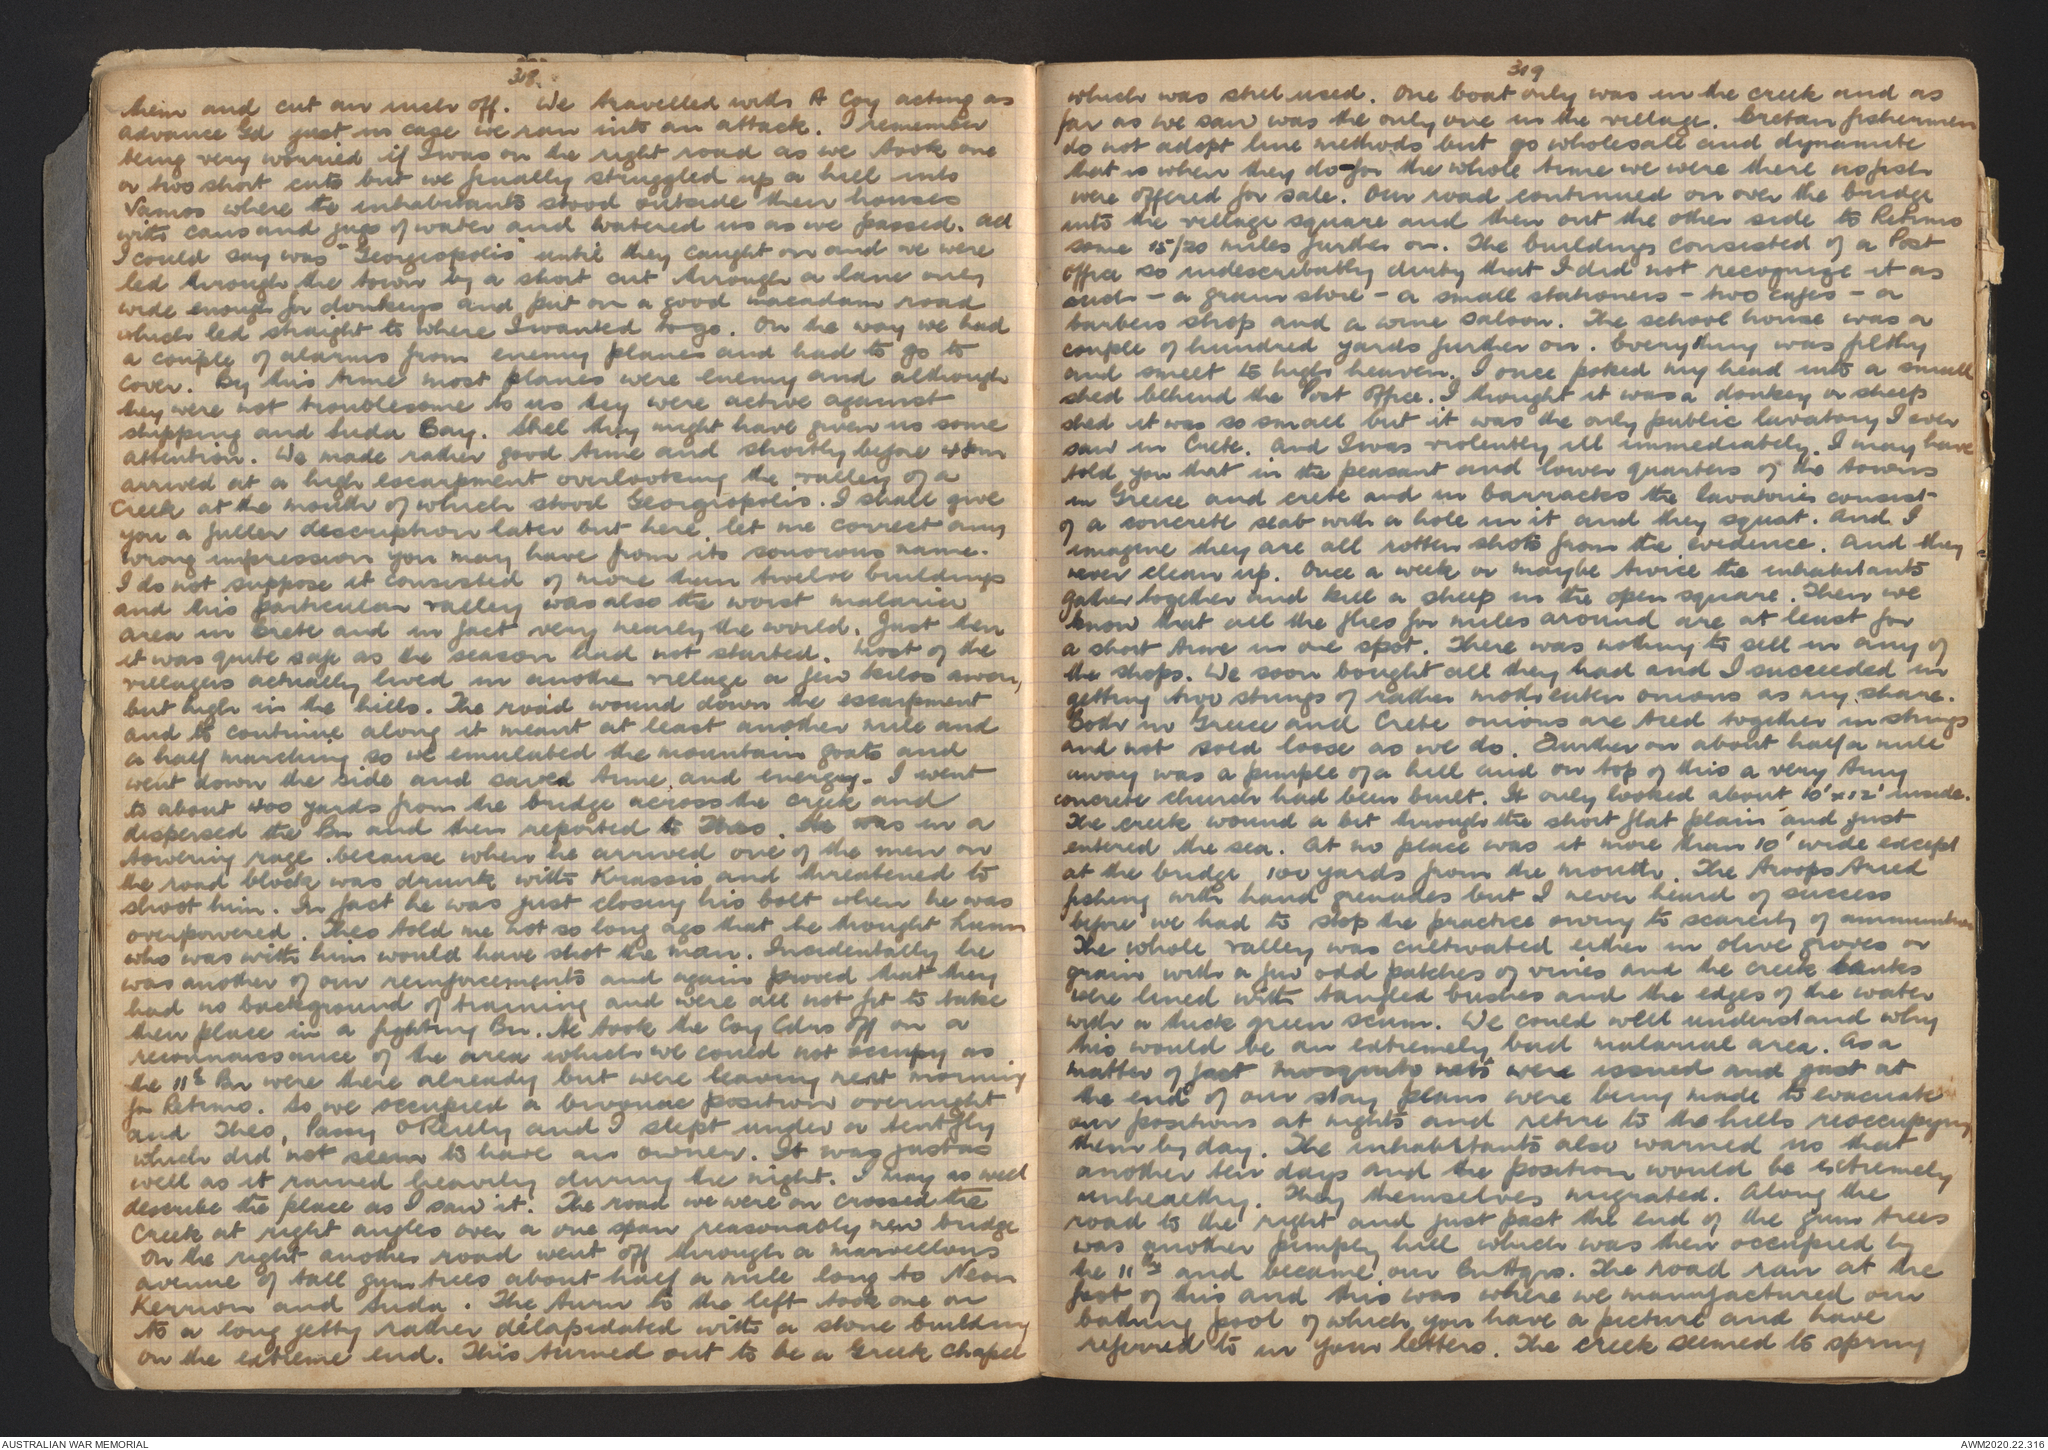 318.
them and cut an inch off. We travelled with A Coy acting as
advance Gd just in case we ran into an attack. I remember
being very worried if I was on the right road as we took one
or two short cuts but we finally struggled up a hill into
Vamos where the inhabitants stood outside their houses
with cans and jugs of water and watered us as we passed. All
I could say was "Georgiopolis" until they caught on and we were
led through the town by a short cut through a lane only
wide enough for donkeys and put on a good macadam road
which led straight to where I wanted to go. On the way we had
a couple of alarms from enemy planes and had to go to
cover. By this time most planes were enemy and although
they were not troublesome to us they were active against
shipping and Suda Bay. Still they might have given us some
attention. We made rather good time and shortly before
arrived at a high escarpment overlooking the valley of a
Creek at the mouth of which stood Georgiopolis. I shall give
you a fuller description later but here let me correct any
wrong impression you may have from its sonorous name.
I do not suppose it consisted of more than twelve buildings
and this particular valley was also the worst malaria
area in Crete and in fact very nearly the world. Just then
it was quite safe as the season had not started. Most of the
villagers actually lived in another village a few kilos away,
but high in the hills. The road wound down the escarpment
and to continue along it meant at least another mile and
a half marching so we emulated the mountain goats and
went down the side and saved time and energy. I went
to about 400 yards from the bridge across the creek and
dispersed the Bn and then reported to Theo. He was in a
towering rage because when he arrived one of the men on
the road block was drunk with Krassis and threatened to
shoot him. In fact he was just closing his bolt when he was
overpowered. Theo told me not so long ago that he thought
who was with him would have shot the man. Incidentally he
was another of our reinforcements and again proved that they
had no background of training and were all not fit to take
their place in a fighting Bn. He took the Coy Cdrs off on a
reconnaissance of the area which we could not occupy as
the 11th Bn were there already but were leaving next morning
for Retimo. So we occupied a bivouac position overnight
and Theo, Paddy O'Reilly and I slept under a tent fly
which did not seem to have an owner. It was just as
well as it rained heavily during the night. I may as well
describe the place as I saw it. The road we were on crossed the
Creek at right angles over a one span reasonably new bridge
On the right another road went off through a marvellous
avenue of tall gum trees about half a mile long to Neon
Kerrion and Suda. The turn to the left took one on
to a long jetty rather delapidated with a stone building
on the extreme end. This turned out to be a Greek Chapel
319
which was still used. One boat only was in the creek and as
far as we saw was the only one in the village. Cretan fishermen
do not adopt line methods but go wholesale and dynamite
that is when they do - for the whole time we were there no fish
were offered for sale. Our road continued on over the bridge
into the village square and then out the other side to Retimo
some 15/20 miles further on. The buildings consisted of a Post
office so indescribably dirty that I did not recognize it as
such - a grain store - a small stationers - two cafes - a
barbers shop and a wine saloon. The school house was a
couple of hundred yards further on. Everything was filthy
and smelt to high heaven. I once poked my head into a small
shed behind the Post Office. I thought it was a donkey or sheep
shed it was so small but it was the only public lavatory I ever
saw in Crete. And I was violently ill immediately. I may have
told you that in the peasant and lower quarters of the towns
in Greece and Crete and in barracks the lavatories consist
of a concrete slab with a hole in it and they squat. And I
imagine they are all rotten shots from the evidence. And they
never clean up. Once a week or maybe twice the inhabitants
gather together and kill a sheep in the open square. Then we
know that all the flies for miles around are at least for
a short time in one spot. There was nothing to sell in any of
the shops. We soon bought all they had and I succeeded in
getting two strings of rather moth eaten onions as my share.
Both in Greece and Crete onions are tied together in strings
and not sold loose as we do. Further on about half a mile
away was a pimple of a hill and on top of this a very tiny
concrete church had been built. It only looked about 10' x 12' inside.
The creek wound a bit through the short flat plain and just
entered the sea. At no place was it more than 10' wide except
at the bridge 100 yards from the mouth. The troops tried
fishing with hand grenades but I never heard of success
before we had to stop the practice owing to scarcity of ammunition
The whole valley was cultivated either in olive groves or
grain with a few odd patches of vines and the creek banks
were lined with tangled bushes and the edges of the water
with a thick green scum. We could well understand why
this would be an extremely bad malarial area. As a
matter of fact mosquito nets were issued and just at
the end of our stay plans were being made to evacuate
our positions at nights and retire to the hills reoccupying
them by day. The inhabitants also warned us that
another ten days and the position would be extremely
unhealthy. They themselves migrated. Along the
road to the right and just past the end of the gum trees
was another pimply hill which was then occupied by
the 11th and became our Bn Hqrs. The road ran at the
foot of this and this was where we manufactured our
bathing pool of which you have a picture and have
referred to in your letters. The creek seemed to spring
AUSTRALIAN WAR MEMORIAL
AWM2020.22.316